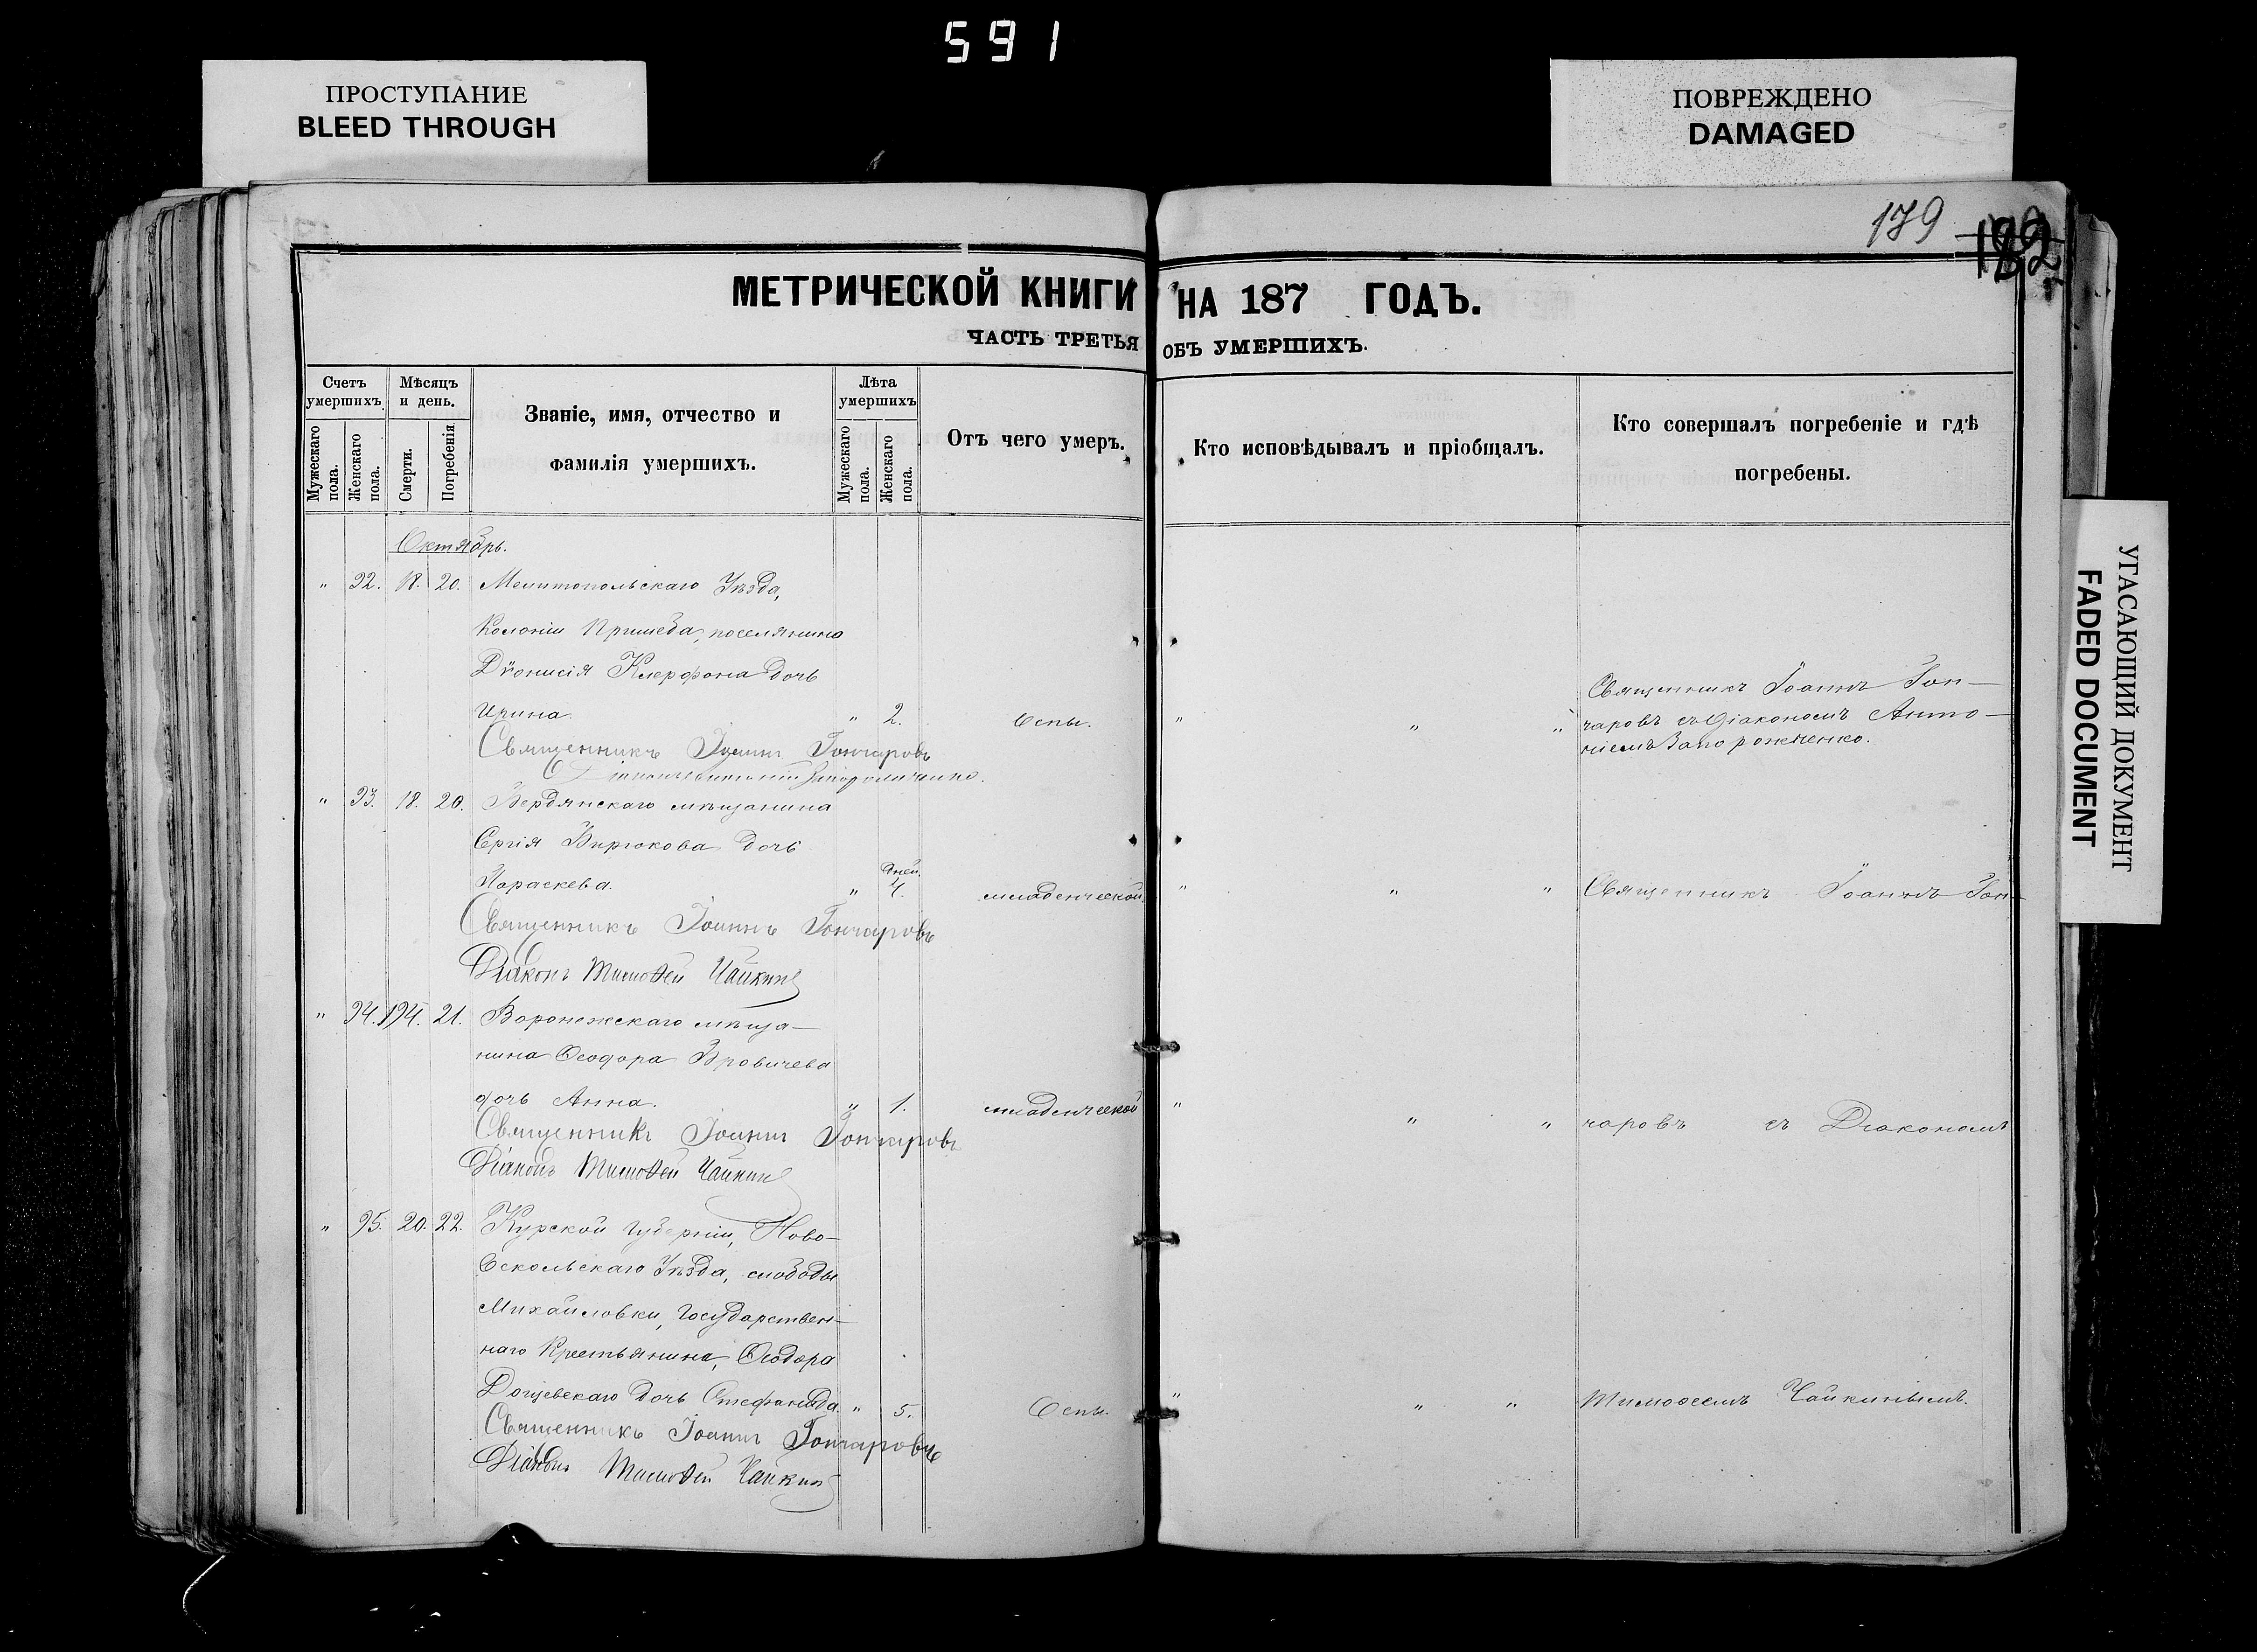 591
ПРОСТУПАНИЕ
BLEED THROUGH
ПОВРЕЖДЕНО
DAMAGED
УГАСАЮЩИЙ ДОКУМЕНТ
FADED DOCUMENT
179 182
МЕТРИЧЕСКОЙ КНИГИ НА 187 ГОДЪ.
ЧАСТЬ ТРЕТЬЯ ОБЪ УМЕРШИХЪ.
Счетъ умершихъ
Мужескаго пола.
Женскаго пола.
Мѣсяцъ и день.
Смерти.
Погребенія
Званіе, имя, отчество и
фамилія умершихъ.
Лѣта умершихъ
Мужескаго пола.
Женскаго пола.
Отъ чего умеръ.
Кто исповѣдывалъ и пріобщалъ.
Кто совершалъ погребеніе и гдѣ
погребены.
Октябрь.
" 92. 18. 20. Мелитопольскаго Уѣзда,
Колоніи Пришеба, поселянина
Діонисія дочь
Ирина. " 2. Оспы. " " "
Священникъ Іоаннъ Гон-
чаровъ съ Діакономъ Анто-
ніемъ Запорожченко.
Священникъ Іоаннъ Гончаровъ
" 93. 18. 20. Бердянскаго мѣщанина
Сергія Бирюкова дочь
Параскева. " дней. 4. младенческой. " " " Священникъ Іоаннъ Гон-
Священникъ Іоаннъ Гончаровъ
Діаконъ Тимоѳей Чайкинъ
" 94. 194. 21. Воронежскаго мѣща-
нина Ѳеодора Бровичева
дочь Анна. " 1. младенческой " " " чаровъ съ Діакономъ
Священникъ Іоаннъ Гончаровъ
Діаконъ Тимоѳей Чайкинъ
" 95. 20. 22. Курской губерніи, Ново-
Оскольскаго Уѣзда, слободы
Михайловки, Государствен-
наго Крестьянина, Ѳеодора
дочь Стефанида. " 5. Оспы. " " " Тимоѳеемъ Чайкинымъ.
Священникъ Іоаннъ Гончаровъ
Діаконъ Тимоѳей Чайкинъ